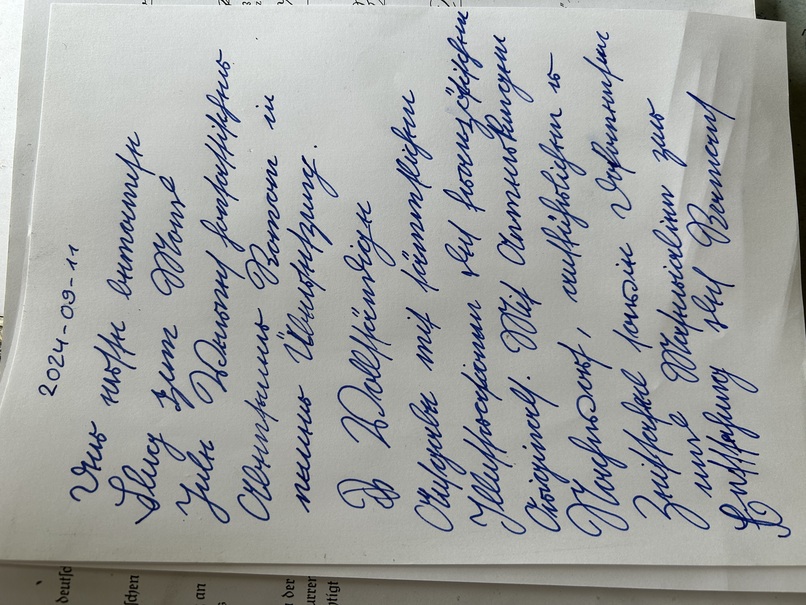 deutsc
schen
an
s
der
urren
htigt
2024-09-11
Der erste bemannte
Flug zum Mond
Jule Vernes fantastischer
Abenteuer Roman in
neuer Übersetzung.
Vollständige
Ausgabe mit sämmtlichen
Illustrationen des französischen
Originals. Mit Anmerkungen
Nachwort, ausführlicher
Zeittafel sowie Dokumenten
und Materialien zur
Entstehung des Romans